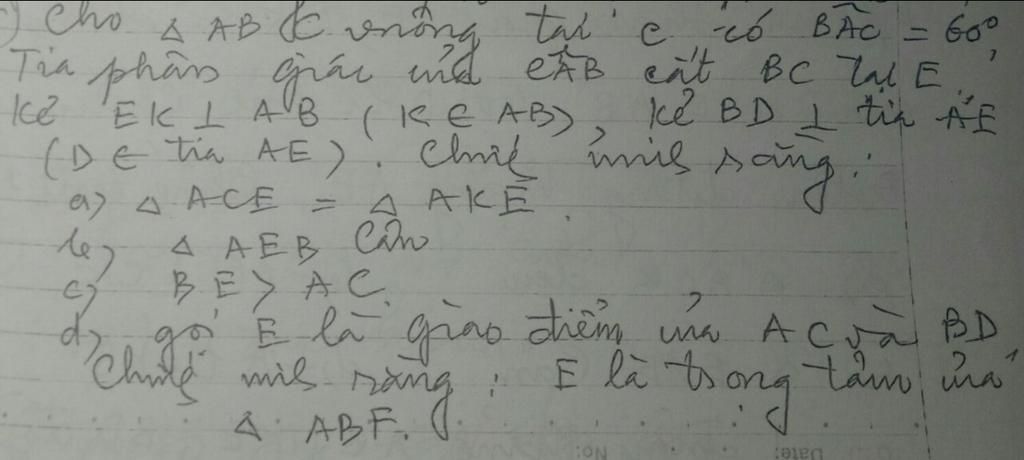 ) Cho △ ABC vuông tại C có BÂC = 60°
Tia phân giác của CÂB cắt BC tại E.
Kẻ EK ⊥ AB (K ∈ AB), kẻ BD ⊥ tia AE
(D ∈ tia AE). Chứng minh rằng:
a) △ ACE = △ AKE.
b) △ AEB Cân
c) BE > AC.
d) gọi E là giao điểm của AC và BD
Chứng minh rằng: E là trọng tâm của
△ ABF.
Date: No: